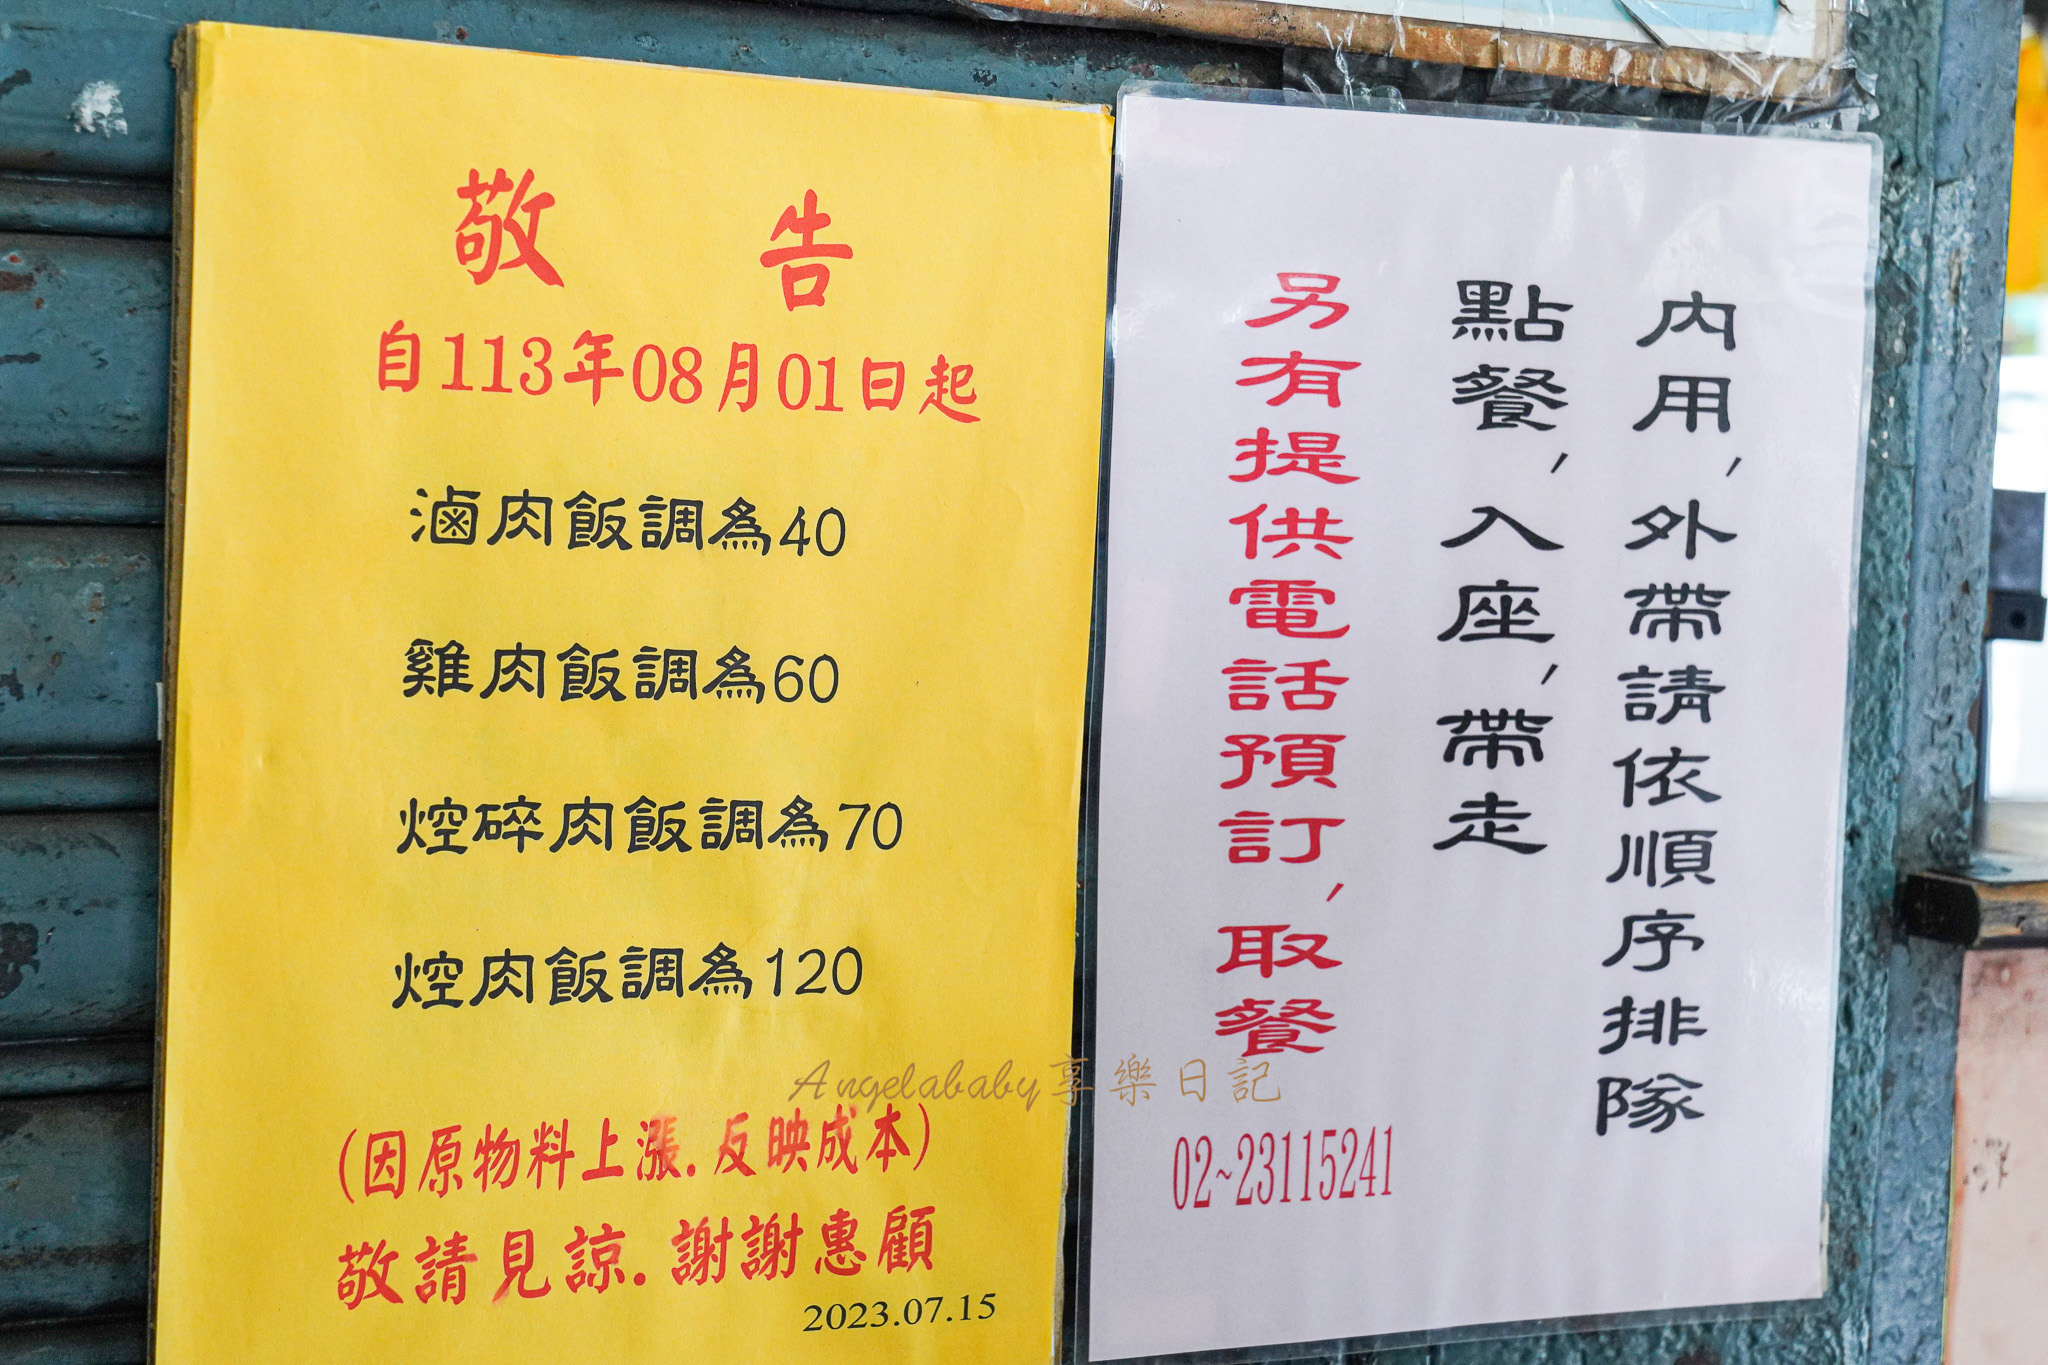 敬 告
自113年08月01日起
滷肉飯調為40
雞肉飯調為60
焢碎肉飯調為70
焢肉飯調為120
(因原物料上漲.反映成本)
敬請見諒.謝謝惠顧
2023.07.15
內用,外帶請依順序排隊
點餐,入座,帶走
另有提供電話預訂,取餐
02~23115241
Angelababy享樂日記